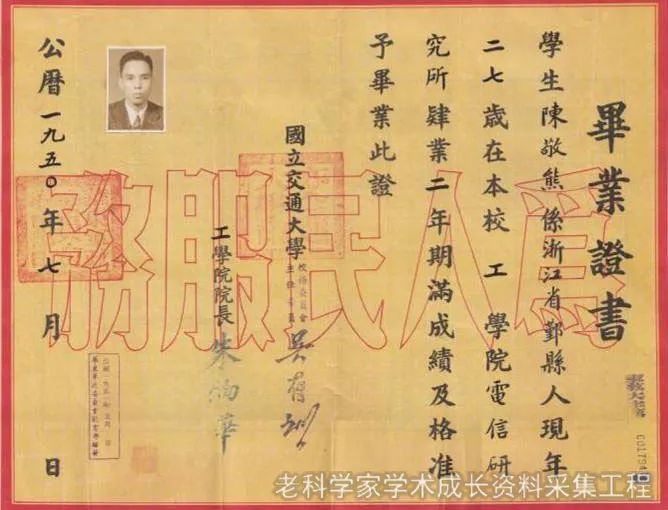 畢業證書
學生陳敬熊係浙江省鄞縣人現年
二七歲在本校 工 學院電信研
究所肄業二年期滿成績及格准
予畢業此證
國立交通大學校務委員會主任委員
吳有訓
工學院院長 朱物華
公曆一九五〇年七月 日
為人民服務
老科学家学术成长资料采集工程